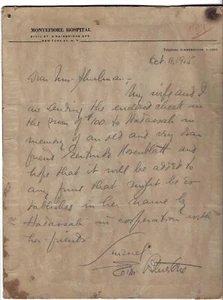 MONTEFIORE HOSPITAL
NEW YORK
Oct. 11, 1945
Dear Mrs.
My wife and I
are sending the enclosed check in
the sum of $100 to Hadassah in
memory of an old and very dear
friend Gertrude Rosenblatt and
hope that it will be added to
any fund that might be es-
tablished in her name by
Hadassah in cooperation with
her friends.
Sincerely